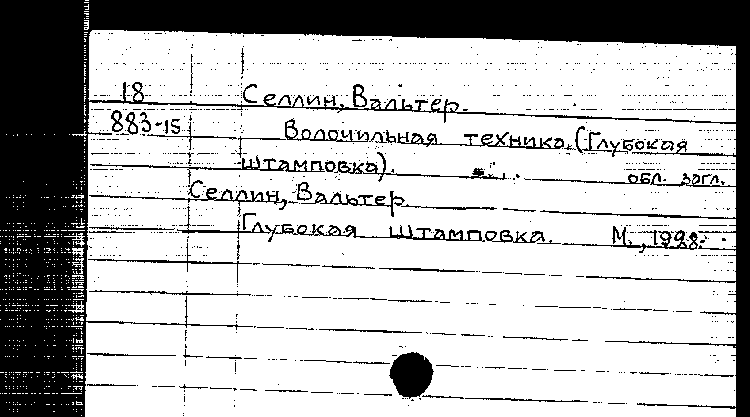 18 Селлин, Вальтер.
883-15 Волочильная техника. (Глубокая
штамповка). обл. загл.
Селлин, Вальтер.
Глубокая штамповка. М., 1928.